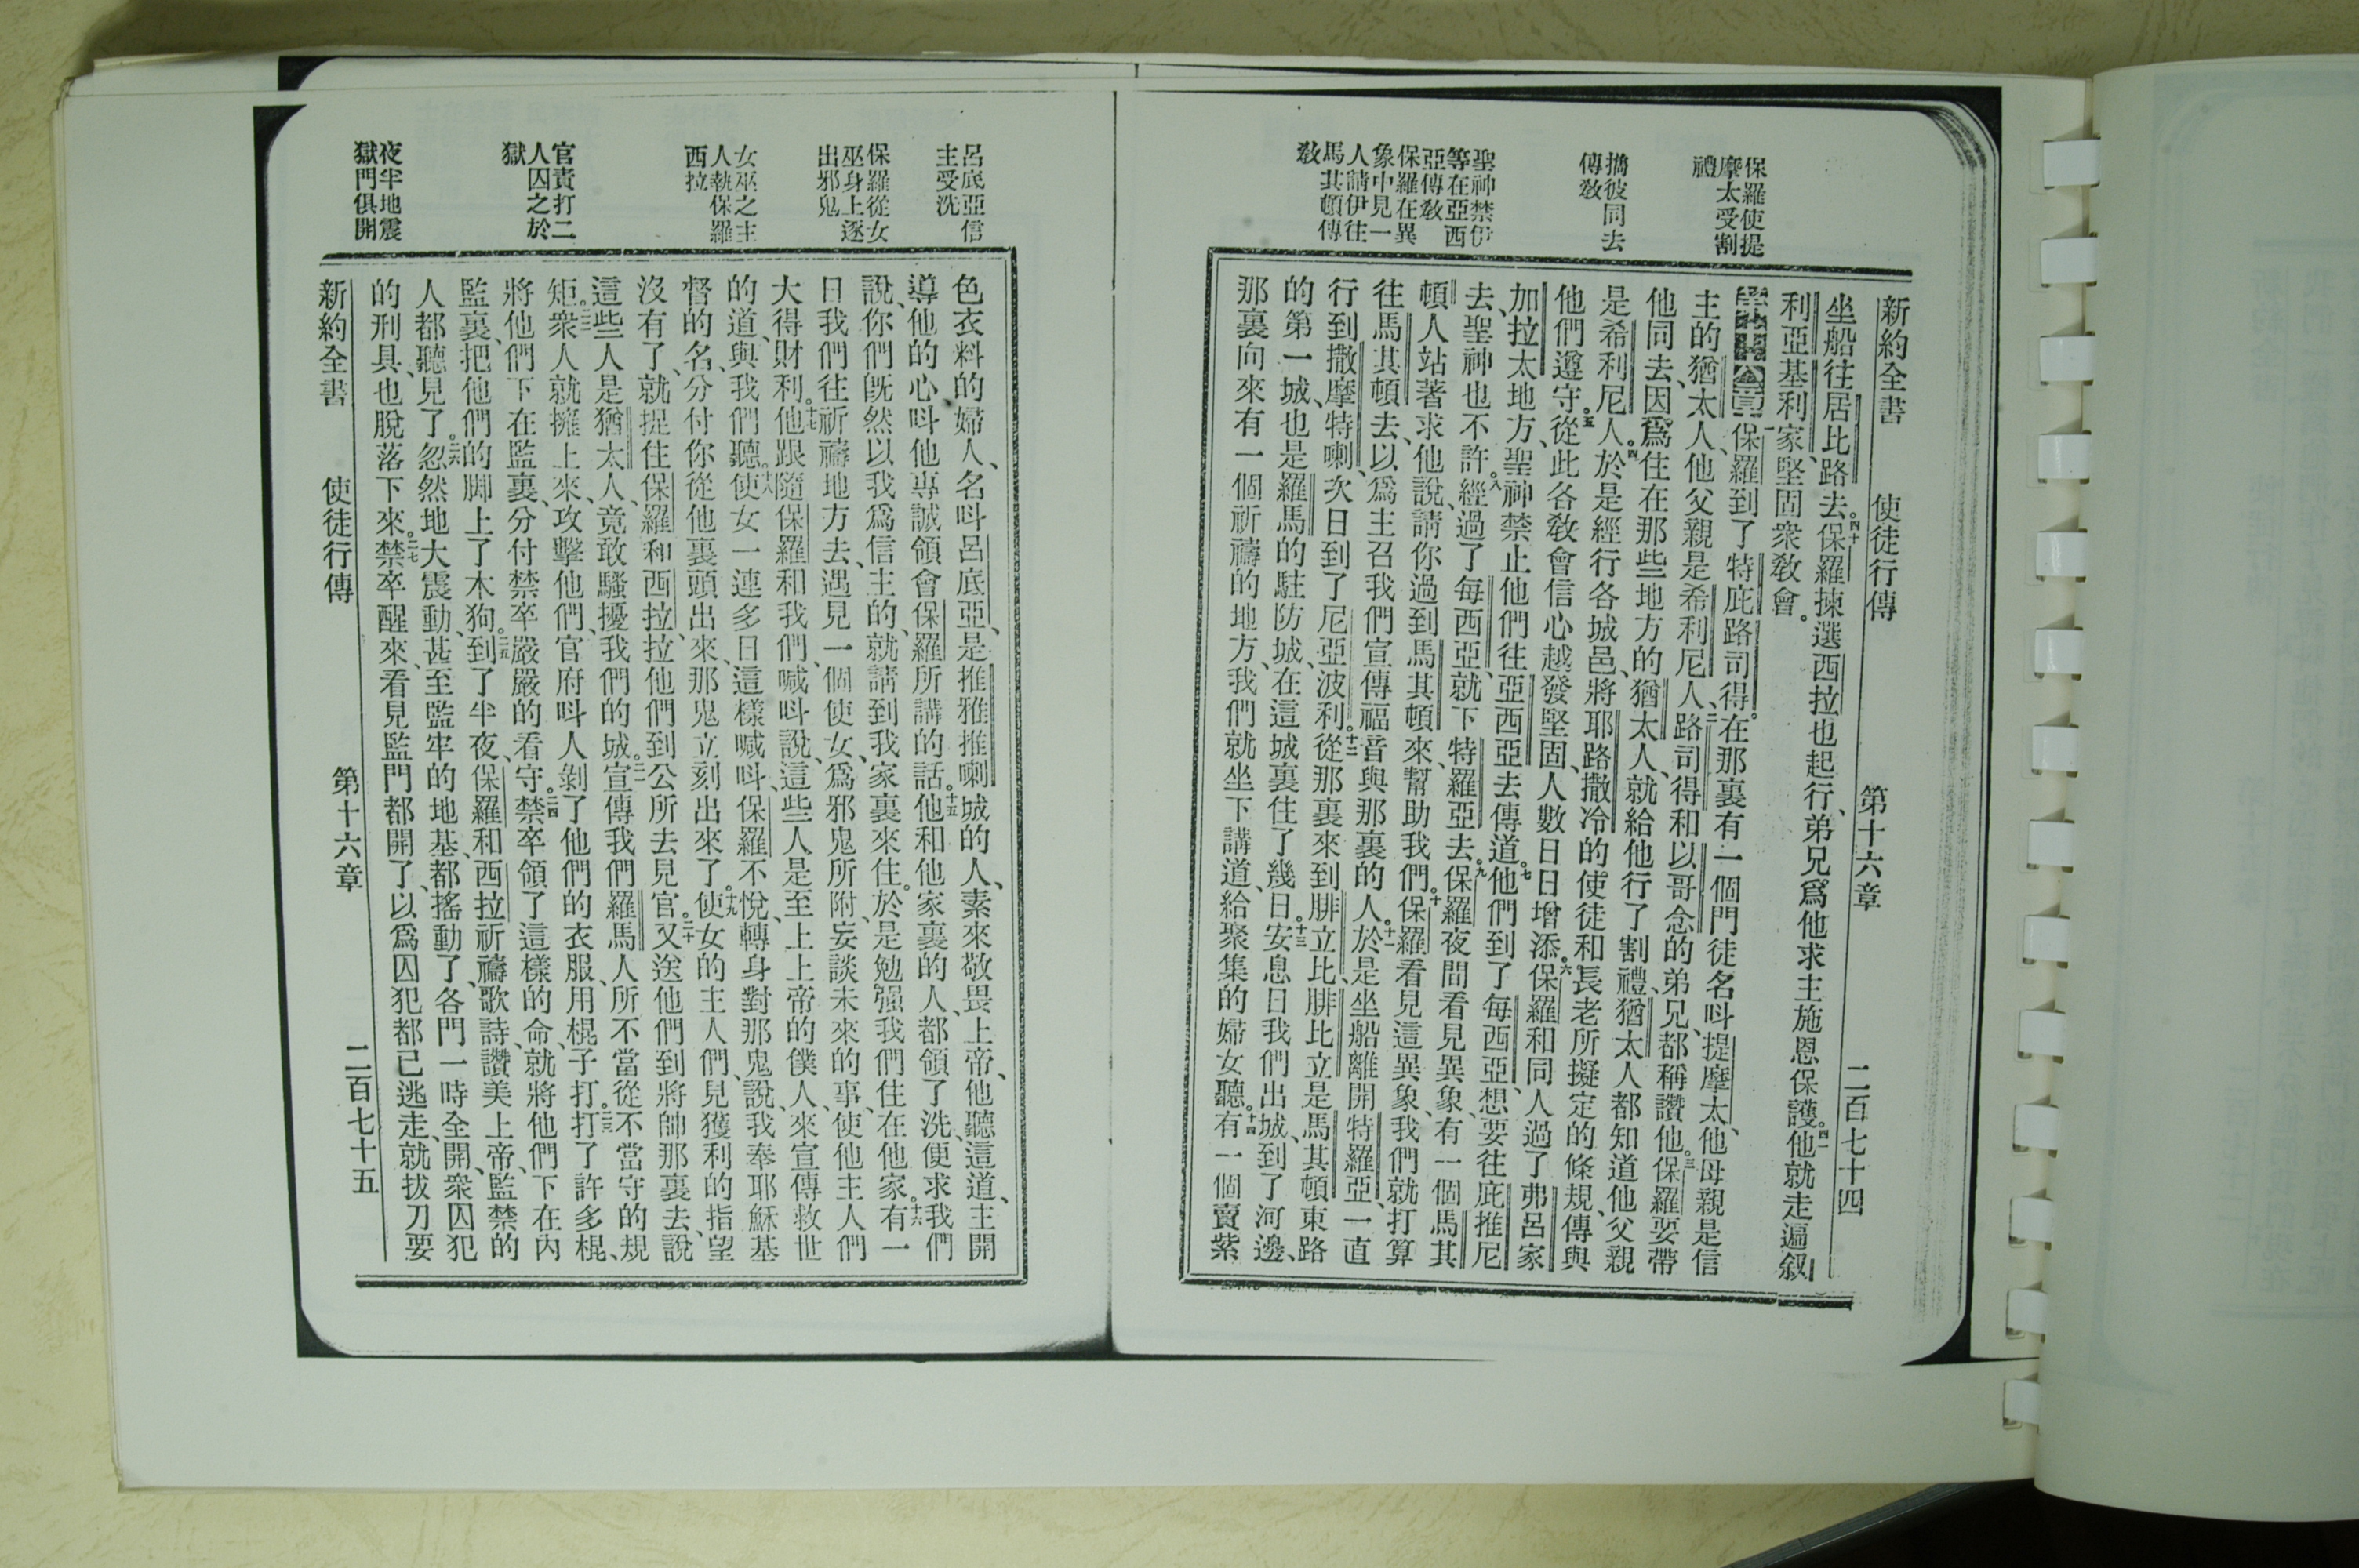 保羅使提
摩太受割
禮
攜彼同去
傳教
聖神禁伊
等在亞西
亞傳教
保羅在異
象中見一
人請伊往
馬其頓傳
教
新約全書 使徒行傳 第十六章 二百七十四
坐船往居比路去。四十保羅揀選西拉也起行、弟兄爲他求主施恩保護。四一他就走遍叙
利亞基利家、堅固衆教會。
一保羅到了特庇路司得。在那裏有一個門徒名呌提摩太、他母親是信
主的猶太人、他父親是希利尼人、二路司得和以哥念的弟兄、都稱讚他。三保羅要帶
他同去、因爲住在那些地方的猶太人、就給他行了割禮、猶太人都知道他父親
是希利尼人。四於是經行各城邑、將耶路撒冷的使徒和長老所擬定的條規、傳與
他們遵守。五從此各教會信心越發堅固、人數日日增添。六保羅和同人過了弗呂家
加拉太地方、聖神禁止他們往亞西亞去傳道。七他們到了每西亞、想要往庇推尼
去、聖神也不許。八經過了每西亞、就下特羅亞去。九保羅夜間看見異象、有一個馬其
頓人站著求他說、請你過到馬其頓來、幫助我們。十保羅看見這異象、我們就打算
往馬其頓去、以爲主召我們宣傳福音與那裏的人。十一於是坐船離開特羅亞、一直
行到撒摩特喇、次日到了尼亞波利。十二從那裏來到腓立比、腓比立是馬其頓東路
的第一城、也是羅馬的駐防城、在這城裏住了幾日。十三安息日我們出城、到了河邊、
那裏向來有一個祈禱的地方、我們就坐下講道、給聚集的婦女聽。十四有一個賣紫
呂底亞信
主受洗
保羅從女
巫身上逐
出邪鬼
女巫之主
人執保羅
西拉
官責打二
人囚之於
獄
夜半地震
獄門俱開
色衣料的婦人、名呌呂底亞、是推雅推喇城的人、素來敬畏上帝、他聽這道、主開
導他的心、呌他專誠領會保羅所講的話。十五他和他家裏的人、都領了洗、便求我們
說、你們旣然以我爲信主的、就請到我家裏來住。於是勉强我們住在他家。十六有一
日我們往祈禱地方去、遇見一個使女、爲邪鬼所附、妄談未來的事、使他主人們
大得財利。十七他跟隨保羅和我們、喊呌說、這些人是至上上帝的僕人、來宣傳救世
的道、與我們聽。十八使女一連多日這樣喊呌、保羅不悅、轉身對那鬼說、我奉耶穌基
督的名、分付你從他裏頭出來、那鬼立刻出來了。十九使女的主人們、見獲利的指望
沒有了、就捉住保羅和西拉、拉他們到公所去見官。二十又送他們到將帥那裏去、說
這些人是猶太人、竟敢騷擾我們的城。二一宣傳我們羅馬人所不當從不當守的規
矩。二二衆人就擁上來、攻擊他們、官府呌人剝了他們的衣服、用棍子打。二三打了許多棍、
將他們下在監裏、分付禁卒嚴嚴的看守。二四禁卒領了這樣的命、就將他們下在內
監裏、把他們的脚上了木狗。二五到了半夜、保羅和西拉祈禱、歌詩、讚美上帝、監禁的
人都聽見了。二六忽然地大震動、甚至監牢的地基、都搖動了、各門一時全開、衆囚犯
的刑具、也脫落下來。二七禁卒醒來、看見監門都開了、以爲囚犯都已逃走、就拔刀要
新約全書 使徒行傳 第十六章 二百七十五